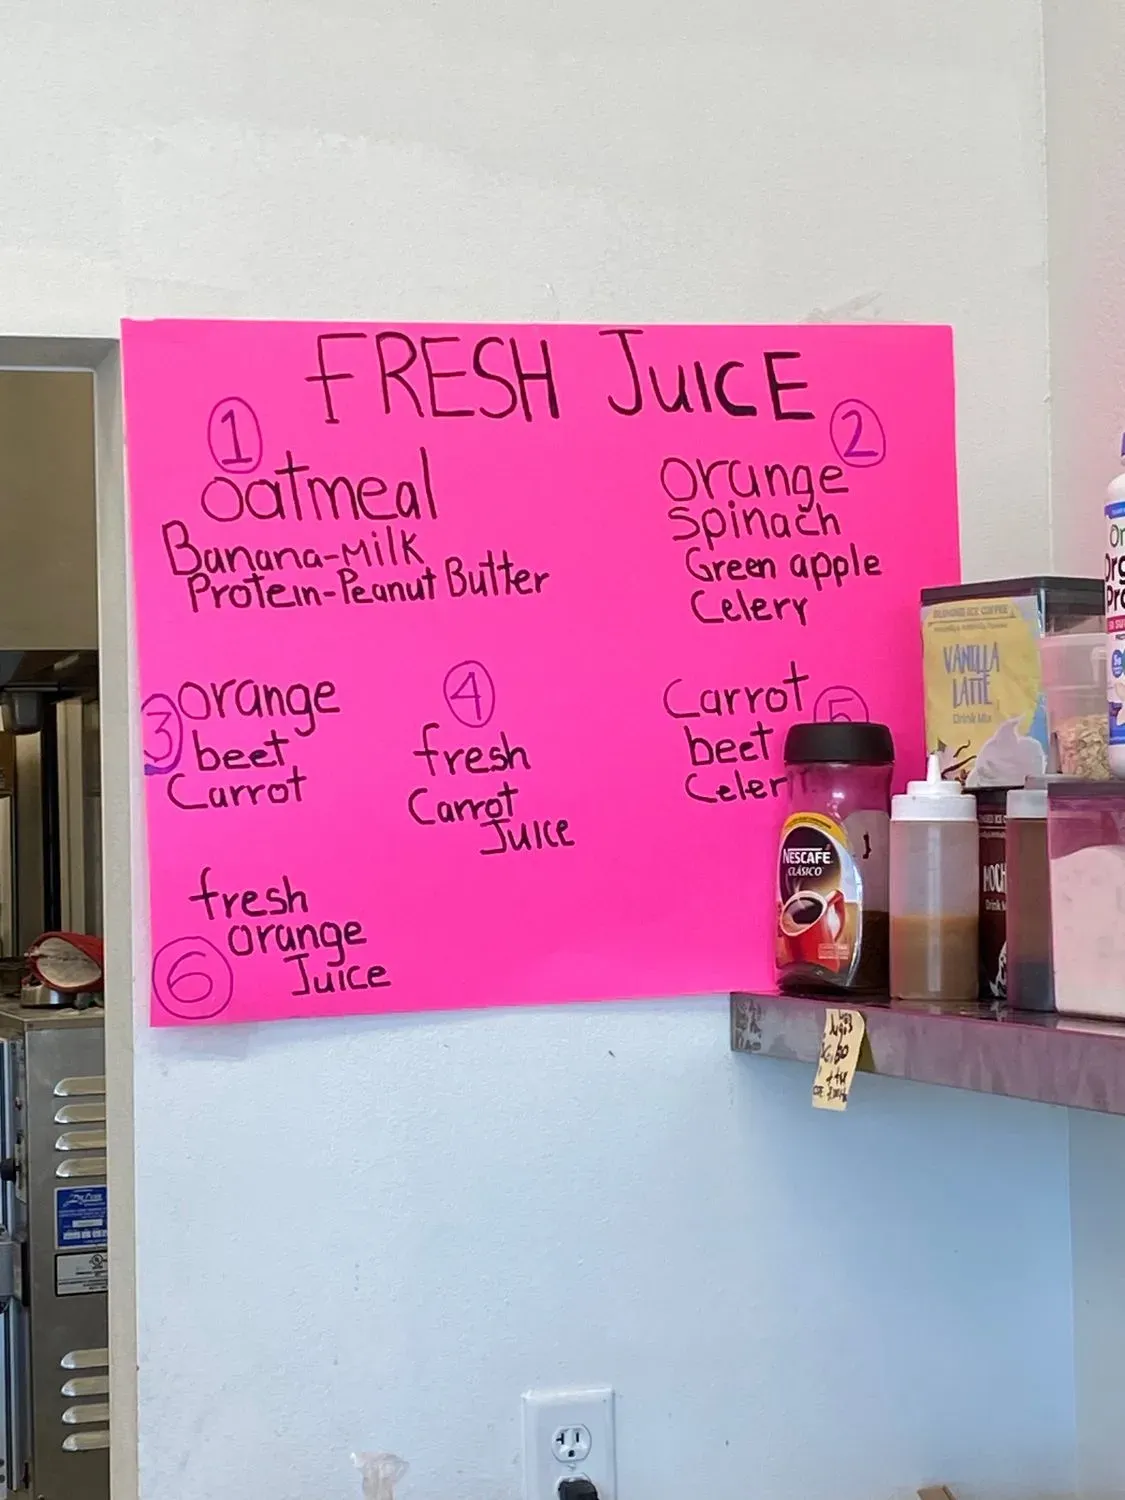 FRESH JUICE
1
oatmeal
Banana-Milk
Protein-Peanut Butter
2
orange
spinach
Green apple
Celery
3
orange
beet
Carrot
4
fresh
Carrot
Juice
5
Carrot
beet
Celer
6
fresh
orange
Juice
BLENDED ICE COFFEE
VANILLA
LATTE
Drink Mix
NESCAFÉ
CLÁSICO
MOCH
Drink M
Or
Org
Pro